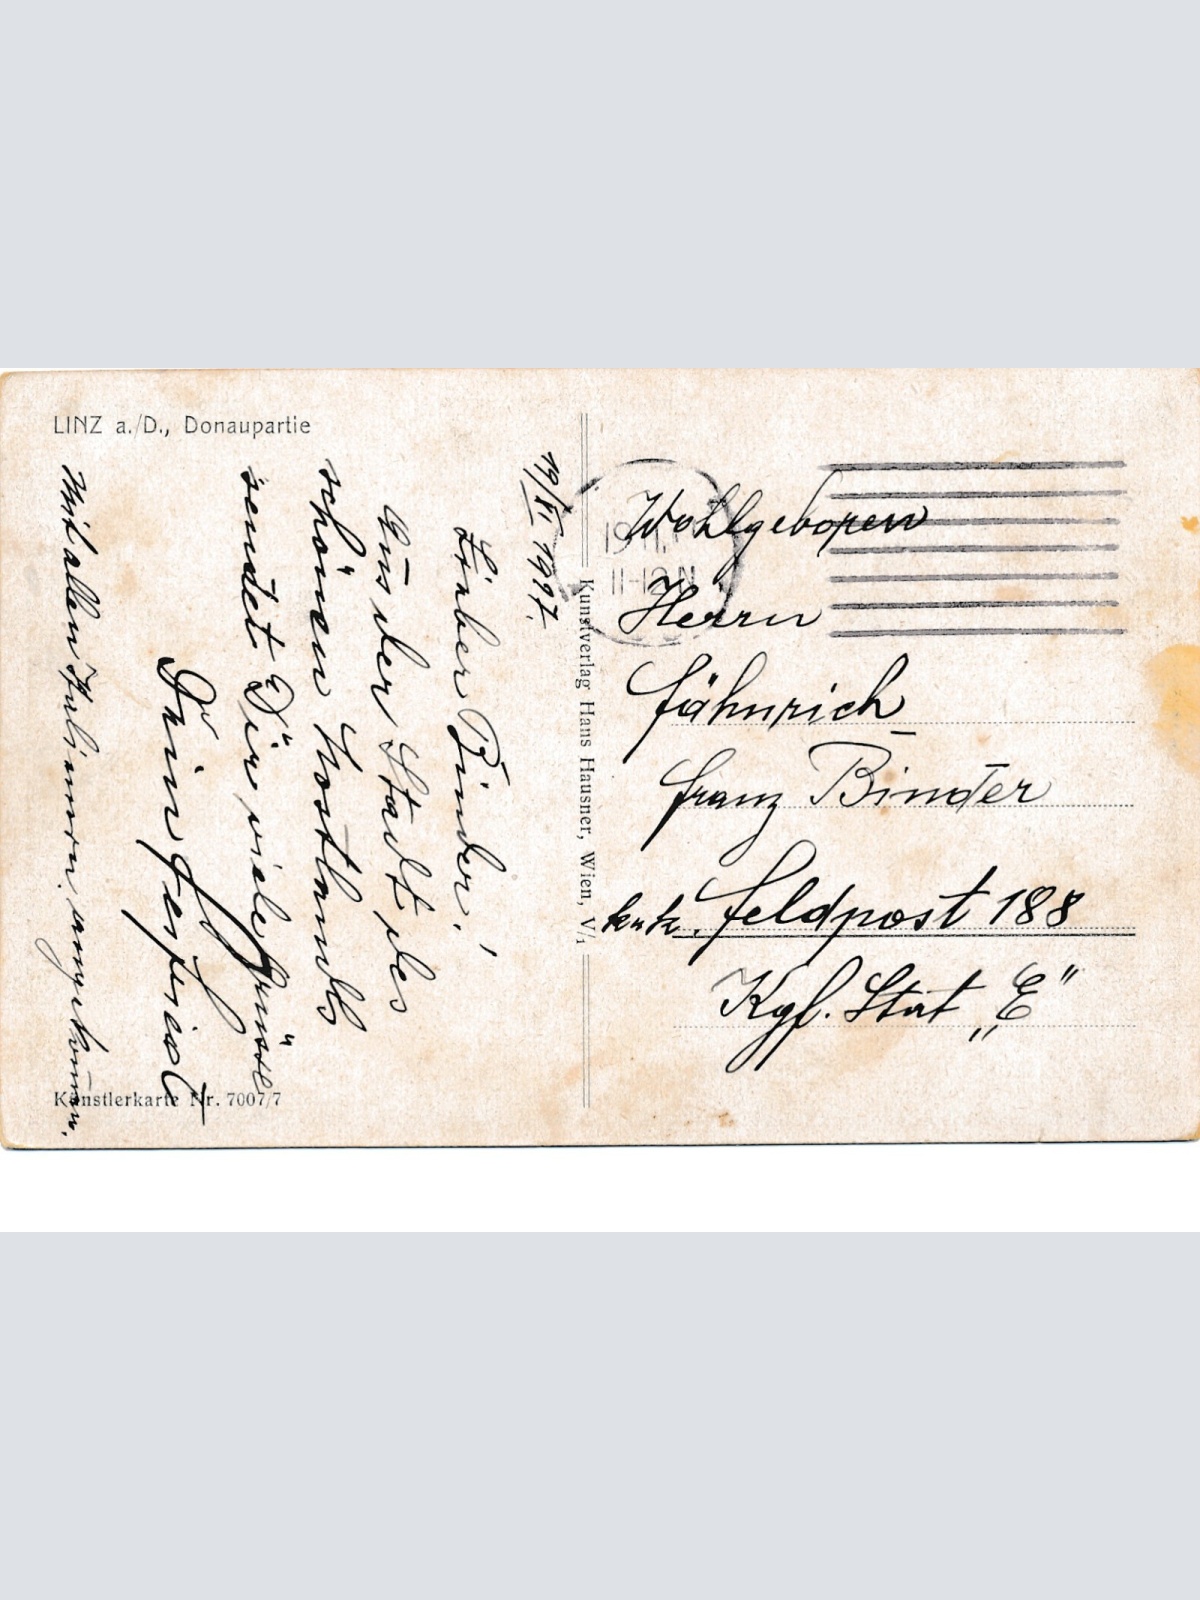 LINZ a./D., Donaupartie
19/XI 1917.
Lieber Binder!
Aus der Stadt des
schönen Hostlands
sendet Dir viele Grüsse
Dein
Mit allen Italienern angekommen.
Künstlerkarte Nr. 7007/7
Kunstverlag Hans Hausner, Wien, V/1
19.XI.
11-12 N
Wohlgeboren
Herrn
Fähnrich
Franz Binder
k.u.k. Feldpost 188
Kgf. Stat „E"